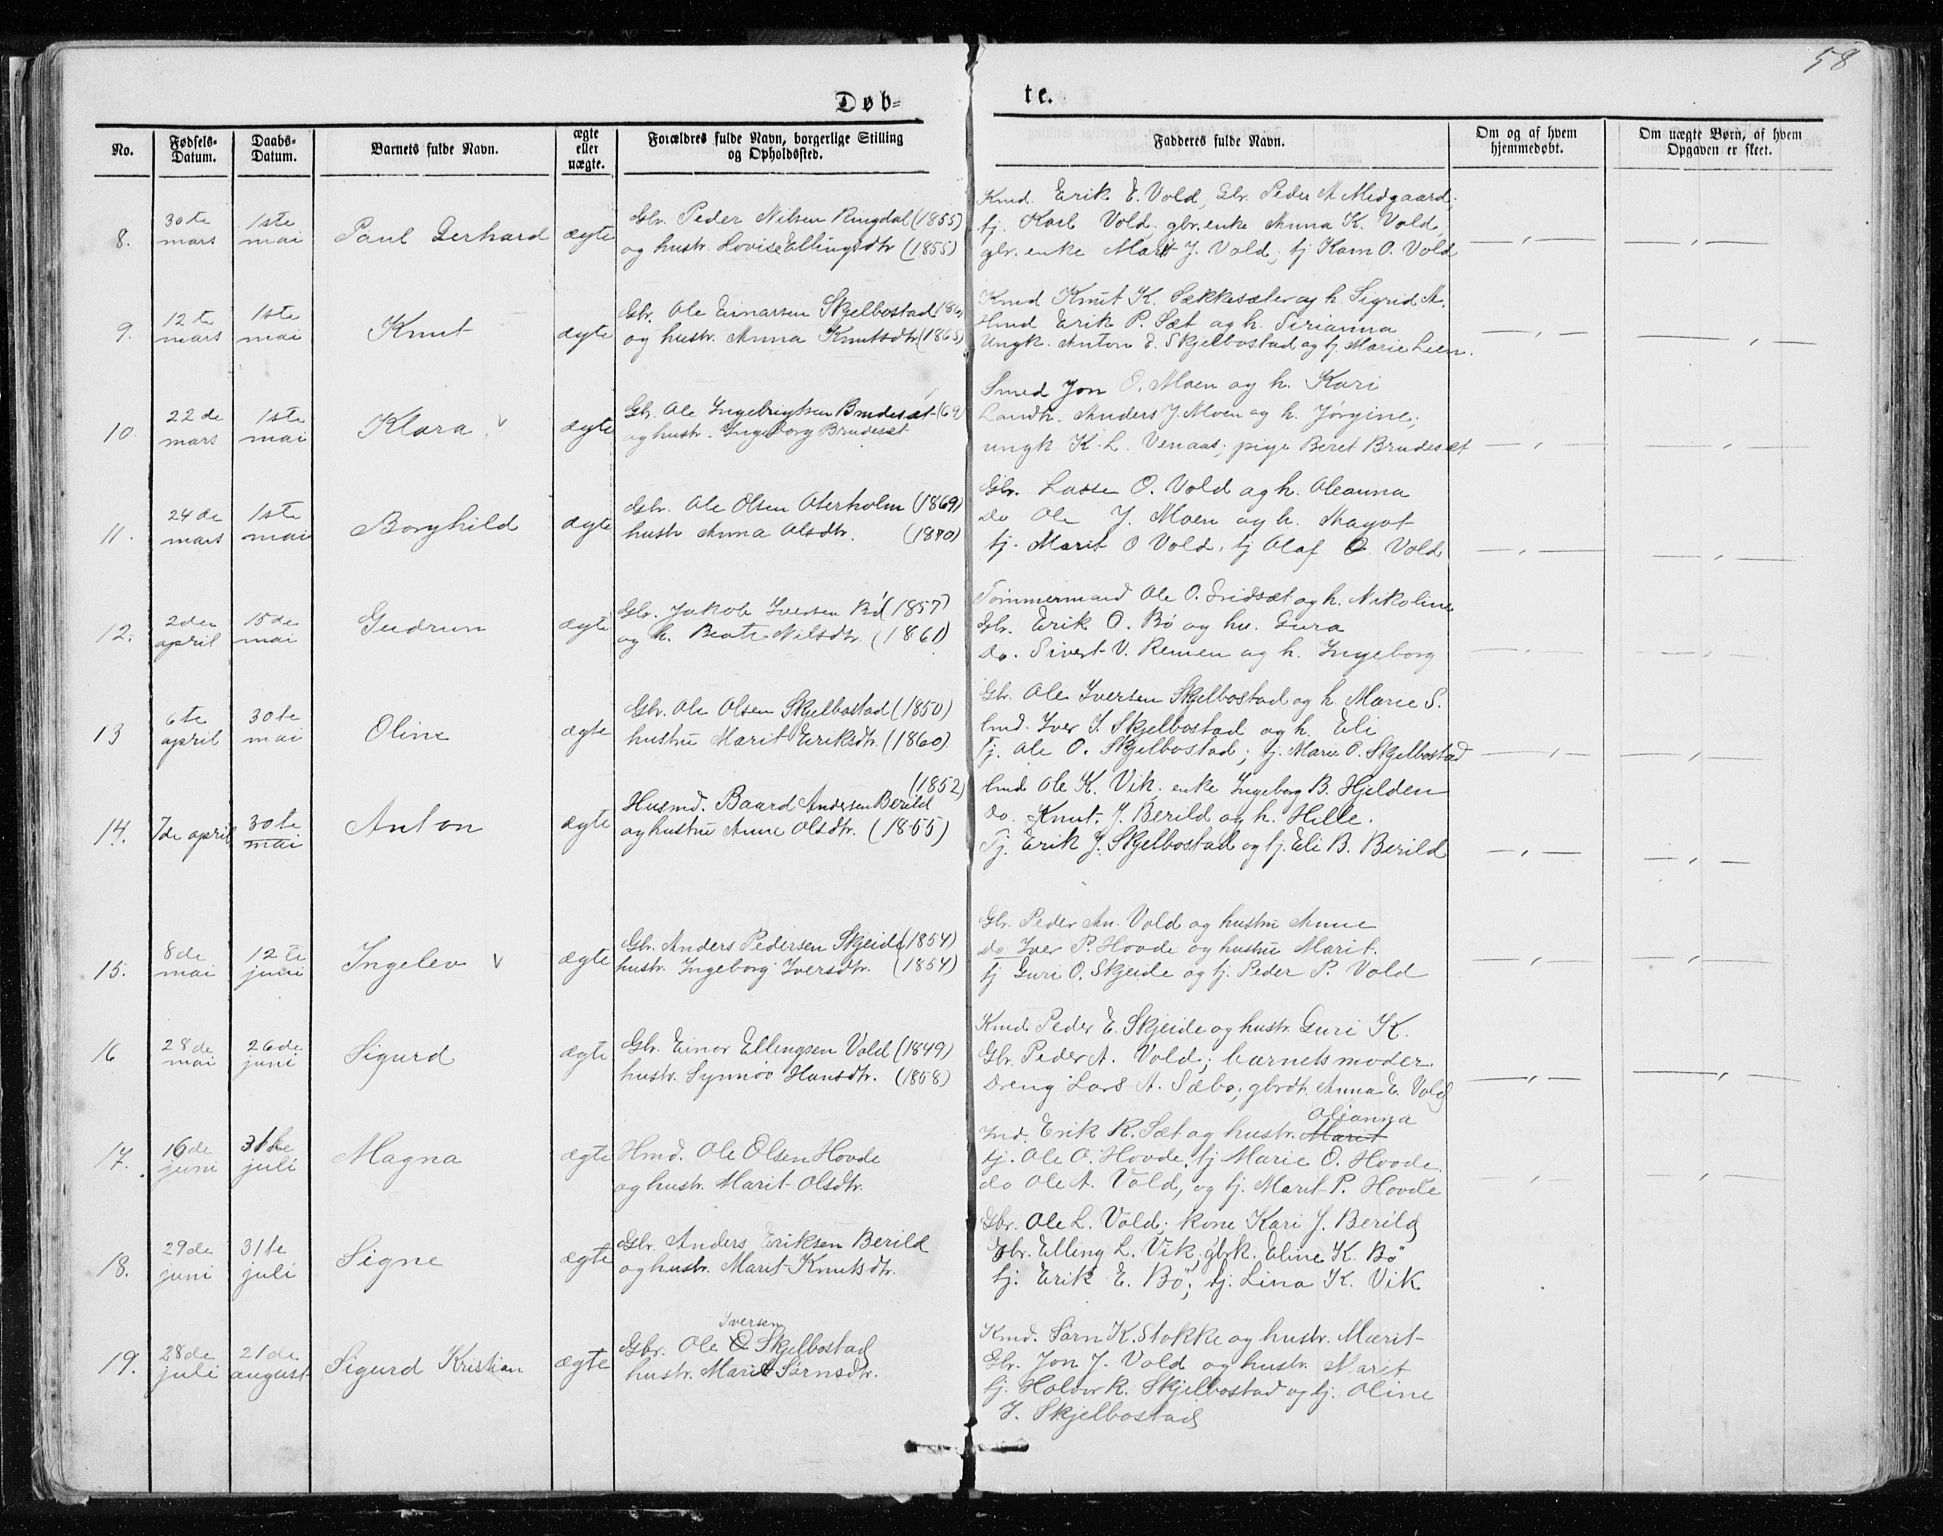 58
Døb=
te.
No.
Fødsels-
Datum.
Daabs-
Datum.
Barnets fulde Navn.
ægte
eller
uægte.
Forældres fulde Navn, borgerlige Stilling
og Opholdssted.
Fadderes fulde Navn.
Om og af hvem
hjemmedøbt.
Om uægte Børn, af hvem
Opgaven er skeet.
8.
30te
mars
1ste
mai
Paul Gerhard
ægte
Gbr. Peder Nilsen Ringdal (1855)
og hustr. Lovise Ellingsdtr (1855)
Kmd. Erik E. Vold, Gbr. Peder A Midgaard;
tj. Karl Vold, gbr. enke Anna K. Vold,
gbr. enke Marit J. Vold; tj Karn O. Vold
9.
12te
mars
1ste
mai
Knut
ægte
Gbr. Ole Einarsen Skjelbostad
og hustr. Anna Knutsdtr (1865)
Kmd Knut K. Sekkesæter og h. Sigrid A.
Hmd Erik P. Sæt og h. Sirianna
Ungk. Anton E. Skjelbostad og tj. Marie Lien.
10.
22de
mars
1ste
mai
Klara v
ægte
Gbr. Ole Ingebrigtsen Brudesæt (69)
og hustr. Ingeborg Brudesæt
Smed Jon O. Moen og h. Kari
Landh. Anders J. Moen og h. Jørgine;
ungk K. L. Venaas; pige Beret Brudesæt
11.
24de
mars
1ste
mai
Borghild
ægte
Gbr. Ole Olsen Oterholm (1869)
hustr Anna Olsdtr. (1870)
Gbr. Lasse O. Vold og h. Oleanna
Do Ole J. Moen og h. Magot
tj. Marit O Vold, tj Olaf O. Vold
12.
2den
april
15de
mai
Gudrun
ægte
Gbr. Jakob Iversen Bø (1857)
og h. Beate Nilsdtr. (1861)
Tømmermand Ole O. Indsæt og h. Nikoline
Gbr. Erik O. Bø og hu. Gura
Do. Sivert V. Remen og h. Ingeborg
13
6te
april
30te
mai
Oline
ægte
Gbr. Ole Olsen Skjelbostad (1850)
hustru Marit Eriksdtr. (1860)
Gbr. Ole Iversen Skjelbostad og h. Marie S.
Hmd. Iver S. Skjelbostad og h. Eli
Tj. Ole O. Skjelbostad; tj. Marie O. Skjelbostad
14.
7de april
30te
mai
Anton
ægte
(1852)
Husmd. Baard Andersen Berild
og hustru Anne Olsdtr. (1855)
Hmd Ole K. Vik, enke Ingeborg B. Hjelden
do. Knut J. Berild og h. Hille.
Tj. Erik J. Skjelbostad og tj. Eli B. Berild
15.
8de
mai
12te
juni
Ingelev v
ægte
Gbr. Anders Pedersen Skjeide (1854)
hustr. Ingeborg Iversdtr. (1854)
Gbr. Peder An. Vold og hustru Anne
do Iver P. Hovde og hustru Marit.
tj Guri O. Skjeide og tj. Peder P. Vold
16
28de
mai
26de
juni
Sigurd
ægte
Gbr. Einar Ellingsen Vold (1849)
hustr. Synnøv Hansdtr. (1858)
Kmd Peder E. Skjeide og hustr. Guri K.
Gbr. Peder A. Vold; barnets moder
Dreng Lars A. Sæbø; gbrdt. Anna E. Vold
17.
16de
juni
31te
juli
Magna
ægte
Hmd. Ole Olsen Hovde
og hustr. Marit Olsdtr.
Olianna
Ind. Erik R. Sæt og hustr. Marit
tj. Ole O. Hovde, tj Marie O. Hovde.
do Ole A. Vold, og tj. Marit P. Hovde
18.
29de
juni
31te
juli
Signe
ægte
Gbr. Anders Eriksen Berild
og hustr. Marit Knutsdtr.
Gbr. Ole L. Vold; kone Kari J. Berild
Gbr. Elling L. Vik, gbrk. Eline K. Bø
tj. Erik E. Bø; tj. Lina K. Vik
19.
28de
juli
21de
august
Sigurd Kristian
ægte
Iversen
Gbr. Ole O Skjelbostad
hustr. Marit Sørnsdtr.
Kmd. Sørn K. Stokke og hustr. Marit
Gbr. Jon J. Vold og hustr. Marit
tj. Halvor K. Skjelbostad og tj. Oline
J. Skjelbostad